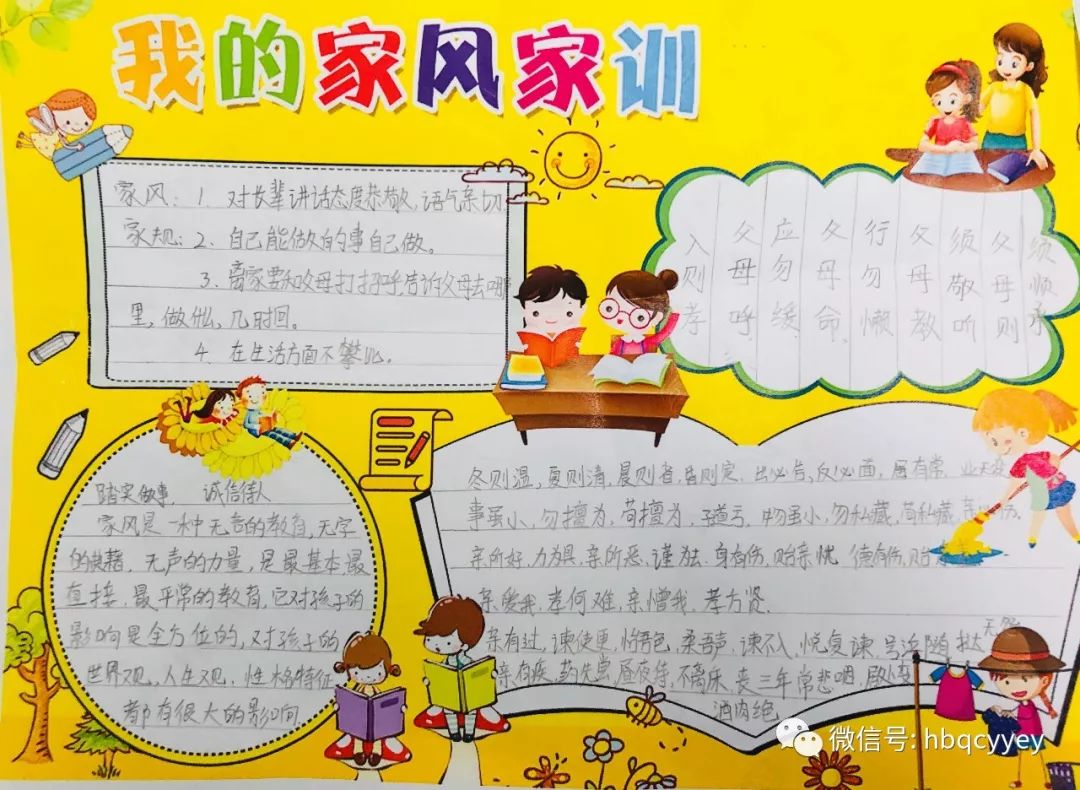 我的家风家训
家风：1 对长辈讲话态度恭敬，语气亲切
家规：2、自己能做的事自己做。
3、离家要和父母打招呼告诉父母去哪
里，做什么，几时回。
4 在生活方面不攀比。
入则孝
父母呼
应勿缓
父母命
行勿懒
父母教
须敬听
父母则
须顺承
踏实做事，诚信待人
家风是一种无言的教育，无字
的典籍，无声的力量，是最基本最
直接，最平常的教育，它对孩子的
影响是全方位的，对孩子的
世界观，人生观，性格特征
都有很大的影响
冬则温，夏则清，晨则省，昏则定，出必告，反必面，居有常，业无变
事虽小，勿擅为，苟擅为，子道亏，物虽小，勿私藏，苟私藏，
亲所好，力为具，亲所恶，谨为去，身有伤，贻亲忧，德有伤，贻
亲爱我，孝何难，亲憎我，孝方贤
无怨
亲有过，谏使更，怡吾色，柔吾声，谏不入，悦复谏，号泣随，挞
亲有疾，药先尝，昼夜侍，不离床，丧三年常悲咽，
酒肉绝
微信号: hbqcyyey